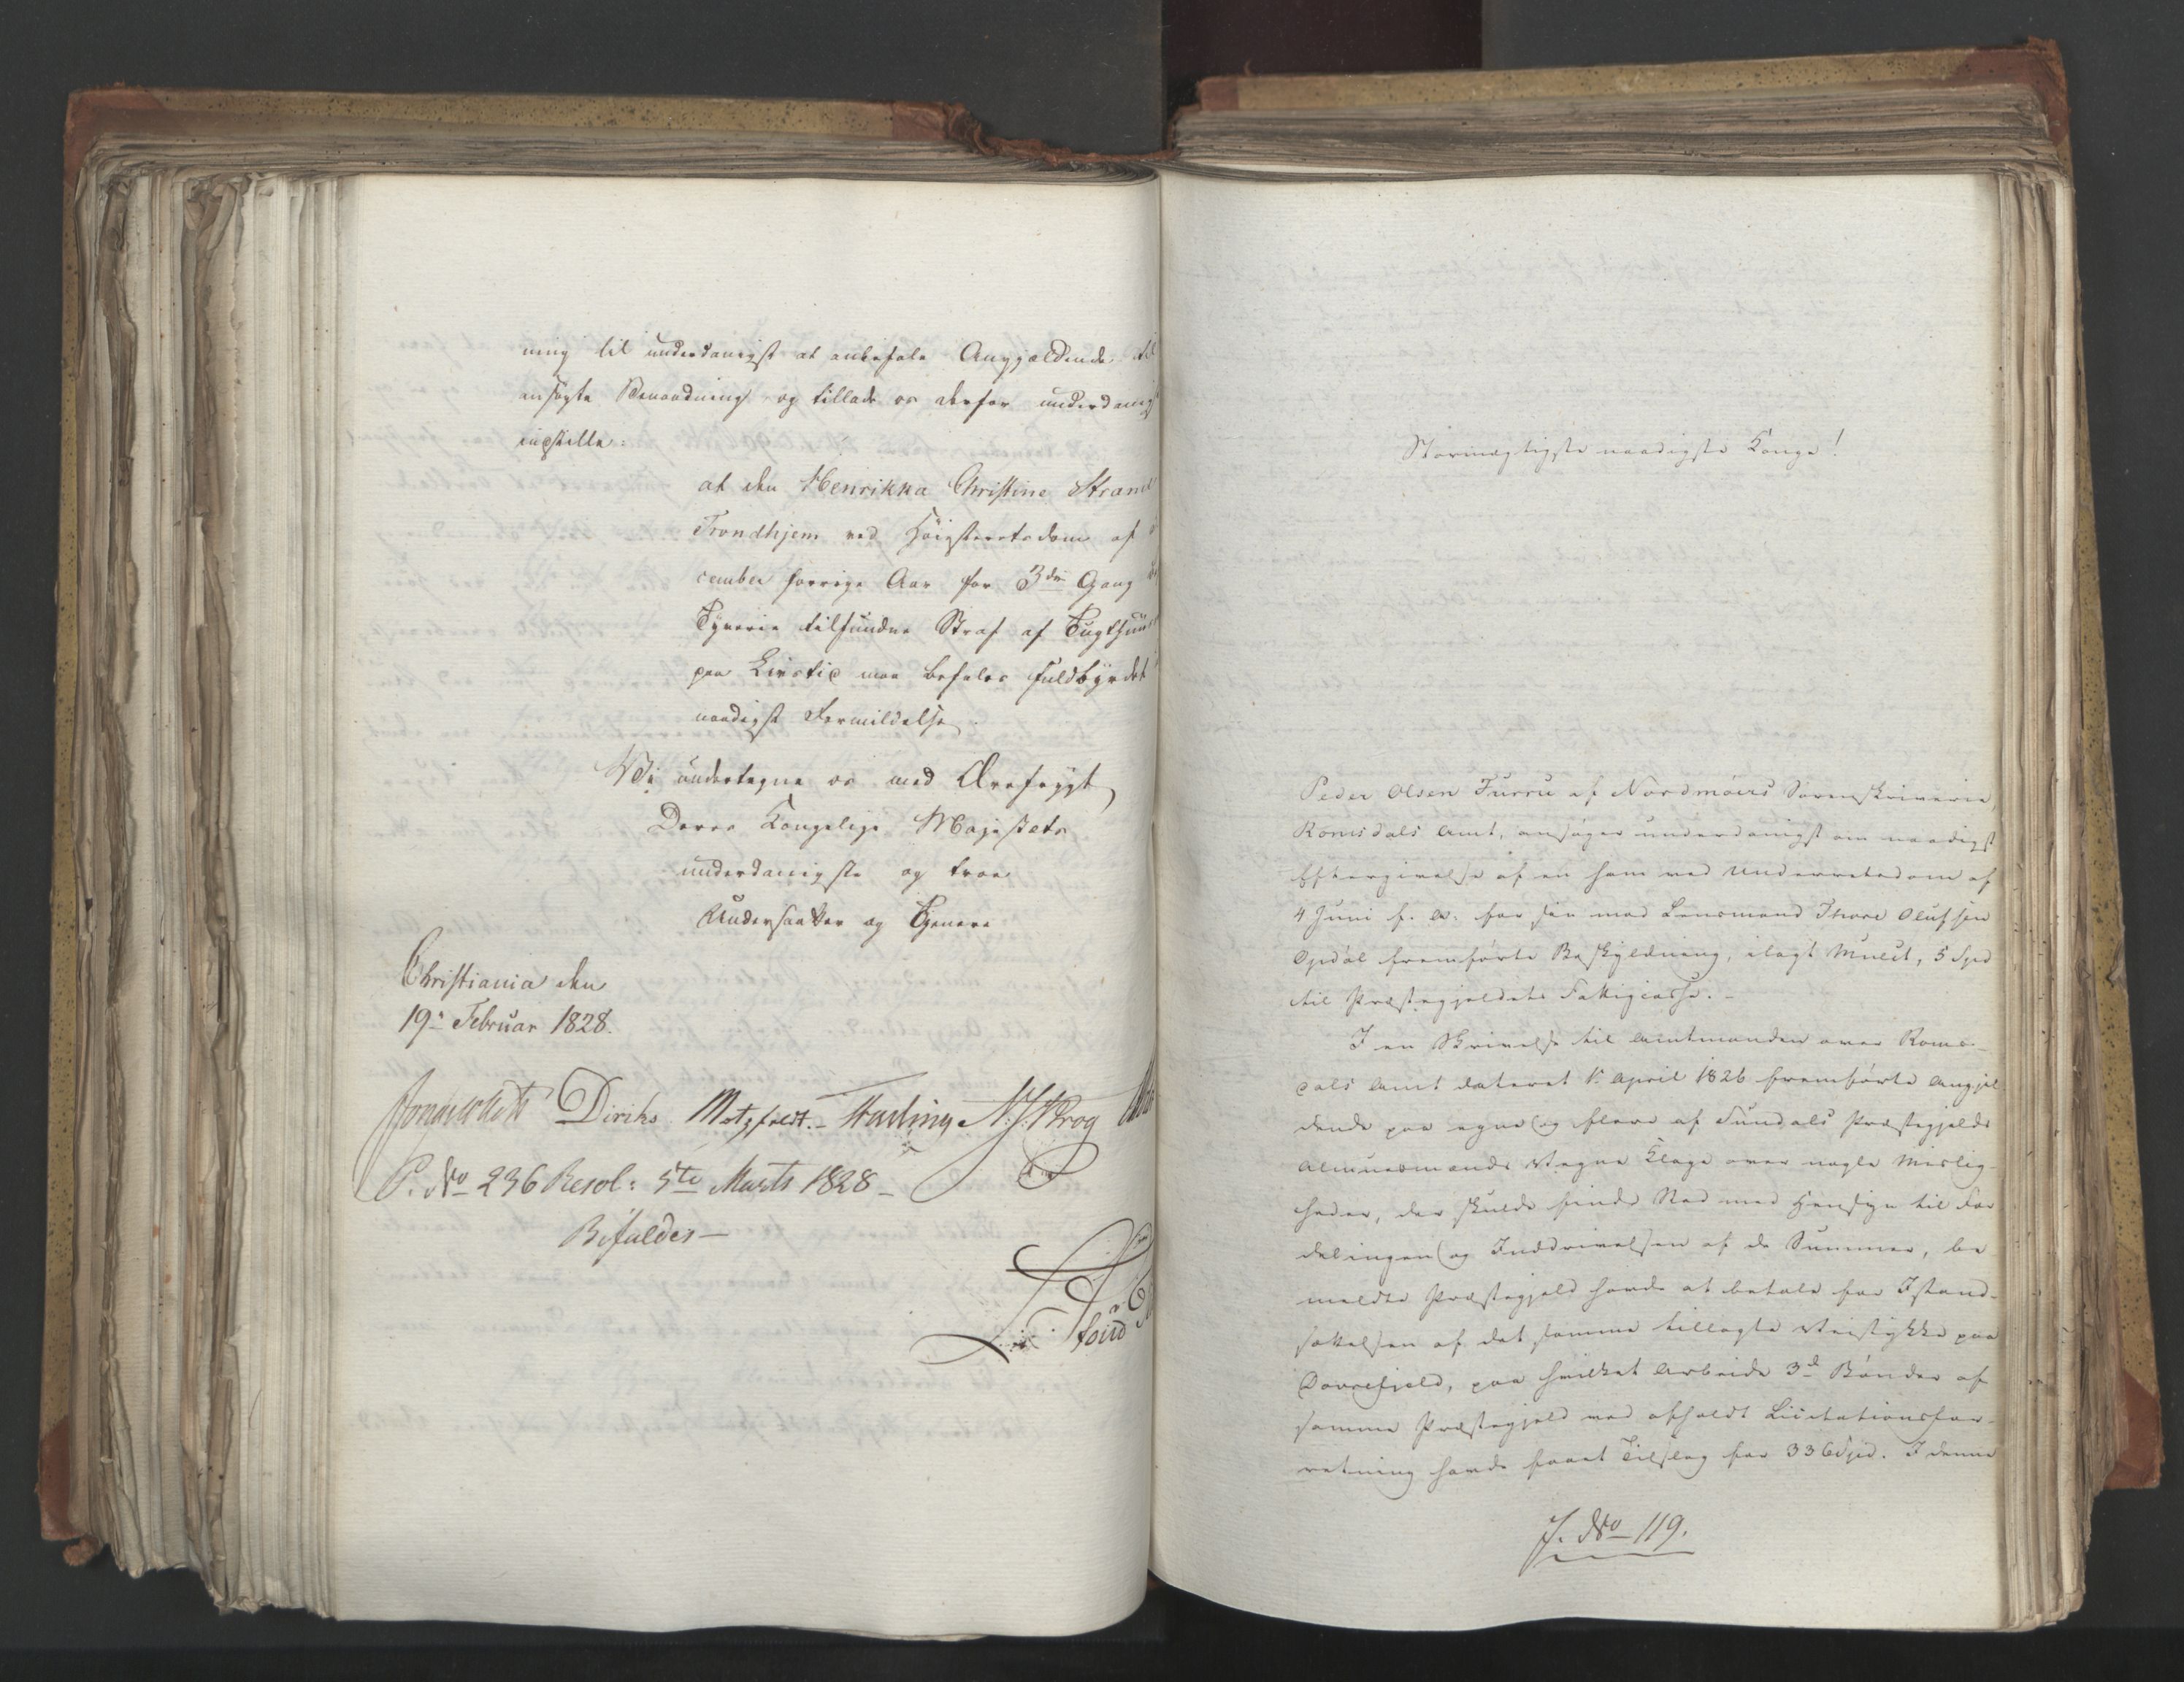 ning til underdanigst at anbefale Angjældende til
ansøgte Benaadning og tillade os derfor underdanigst
indstille:
at den Henrikka Christine Strand
Trondhjem ved Høiesteretsdom af
cember forrige Aar for 3die Gang
Tyverie tilfundne Straf af Tugthuus
paa Livstid maa befales fuldbyrdet
naadigst Formildelse
Vi undertegne os med Ærefrygt
Deres Kongelige Majestæts
underdanigste og troe
Undersaatter og Tjenere
Christiania den
19: Februar 1828.
Diriks Motzfeldt. N. J. Krog
P. No 236 Resol: 5te Marts 1828 –
Bifaldes –
Stormægtigste naadigste Konge!
Peder Olsen Furru af Nordmøers Sorenskriverie
Romsdals Amt, ansøger underdanigst om naadigst
Eftergivelse af en ham ved Underretsdom af
4 Juni f. A: for sin mod Lensmand Thore Olufsen
Opdøl fremførte Beskyldning, ilagt Mulct, 5 Spd
til Præstegjeldets Fattigcasse. –
I en Skrivelse til Amtmanden over Roms-
dals Amt dateret 1: April 1826 fremførte Angjel
dende paa egne og flere af Sundals Præstegjelds
Almuesmænds Vegne Klage over nogle Mislig-
heder, der skulde finde Sted med Hensyn til For
delingen og Inddrivelsen af de Summer, be
meldte Præstegjeld havde at betale for Istand-
sættelsen af det samme tillagte Veistykke paa
Dovrefjeld, paa hvilket Arbeide 3de Bønder af
samme Præstegjeld ved afholdt Licitationsfor-
retning havde faaet Tilslag for 336 Spd. I denne
J. No 119.